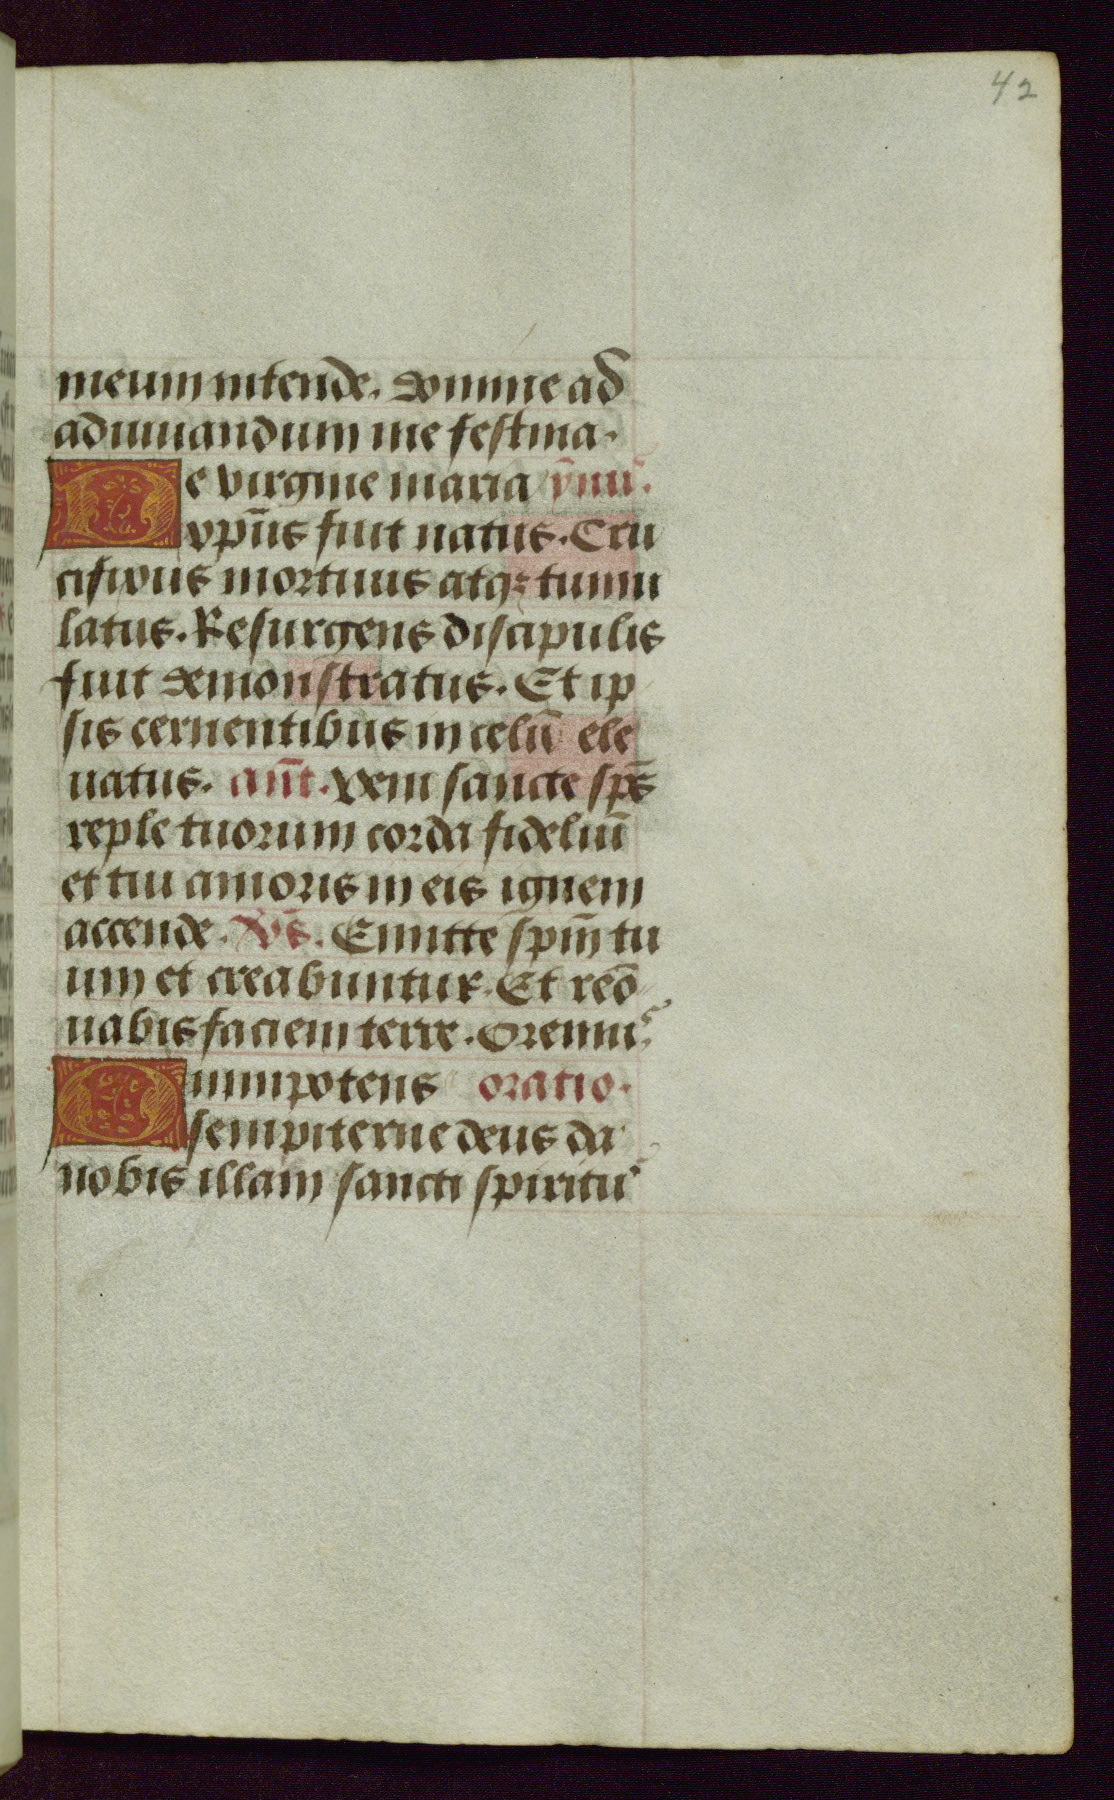 42
meum intende. Domine ad
adiuuandum me festina.
De virgine maria ỹmus.
xp̃us fuit natus. Cru
cifixus mortuus atqꝫ tumu
latus. Resurgens discipulis
fuit demonstratus. Et ip
sis cernentibus in celũ ele
uatus. añt. Veni sancte sp̃s
reple tuorum corda fideliũ
et tui amoris in eis ignem
accende. V̄s. Emitte sp̃m tu
um et creabuntur. Et reno
uabis faciem terre. Oremus
Omnipotens oratio.
sempiterne deus da
nobis illam sancti spiritus